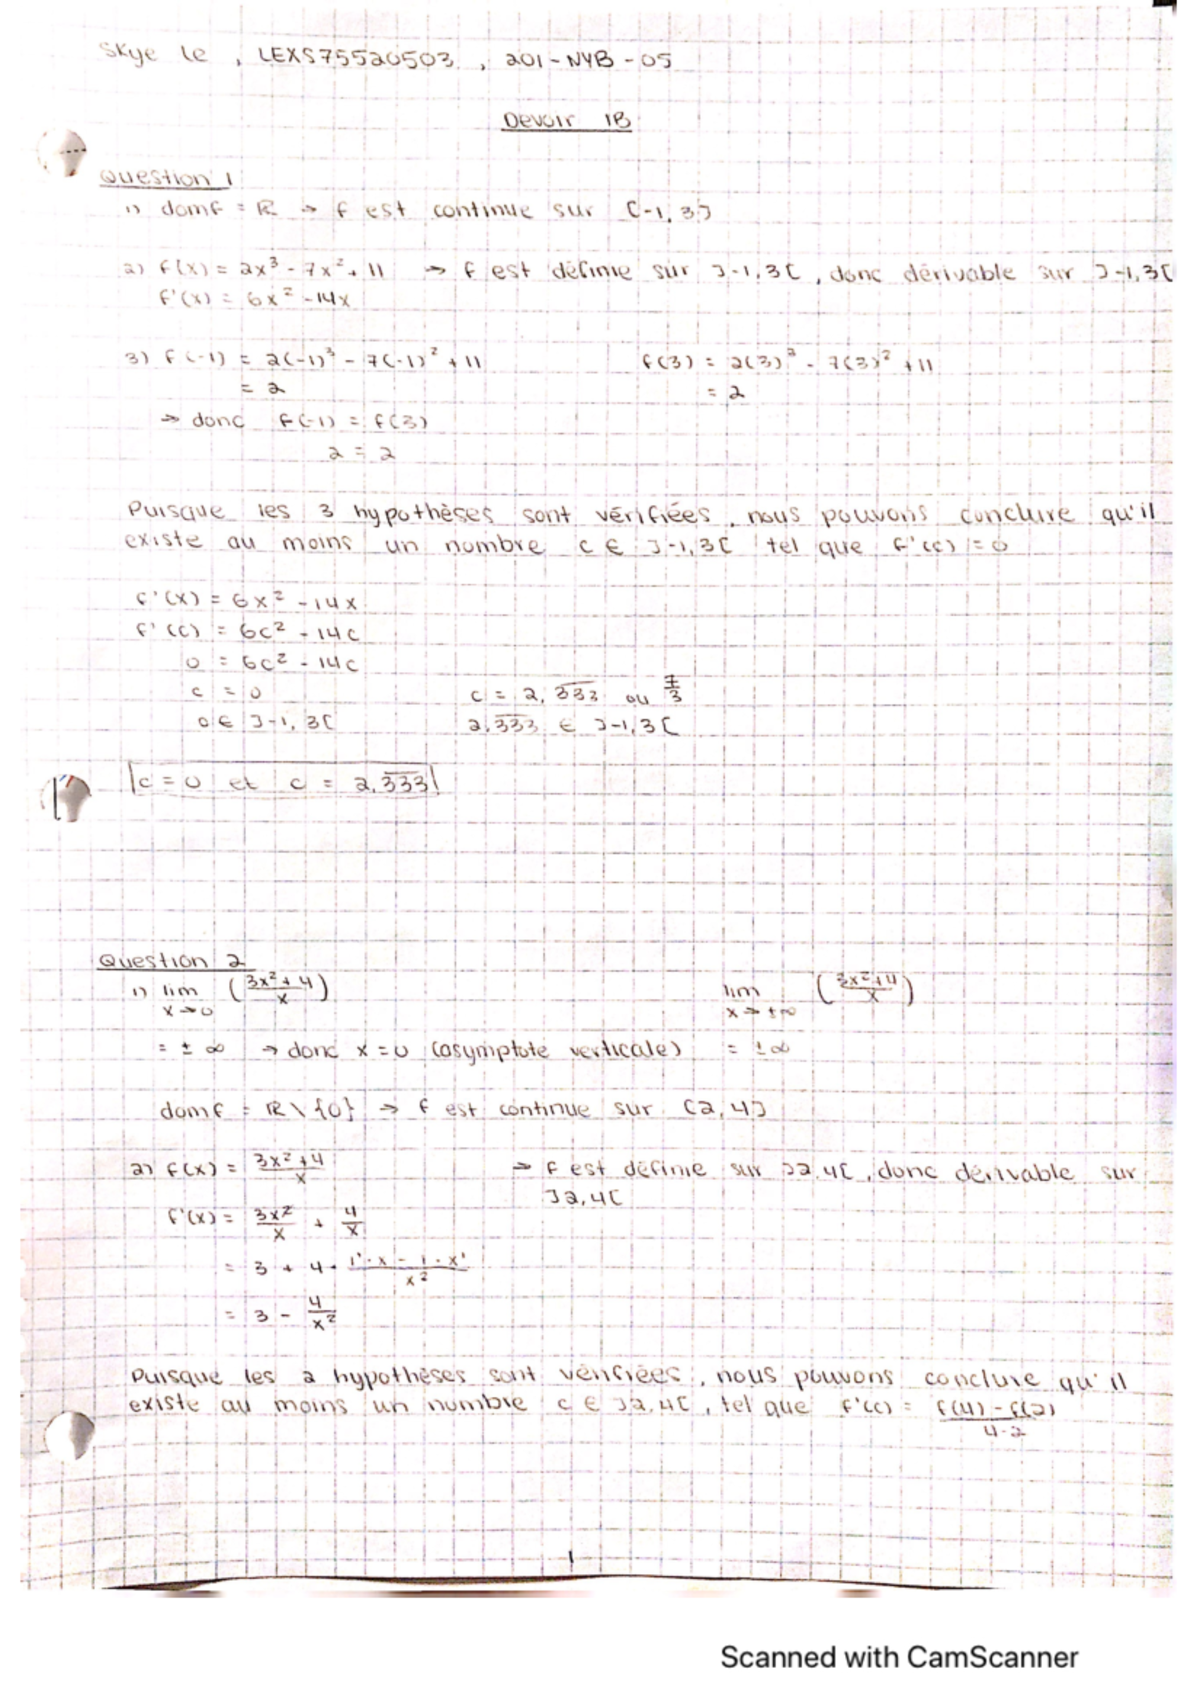 Skye Le , LEXS75520503 , 201-NYB-05
Devoir 1B
Question 1
1) domf = ℝ → f est continue sur [-1, 3]
2) f(x) = 2x³ - 7x² + 11 → f est définie sur ]-1, 3[ , donc dérivable sur ]-1, 3[
f'(x) = 6x² - 14x
3) f(-1) = 2(-1)³ - 7(-1)² + 11 f(3) = 2(3)³ - 7(3)² + 11
= 2 = 2
→ donc f(-1) = f(3)
2 = 2
Puisque les 3 hypothèses sont vérifiées, nous pouvons conclure qu'il
existe au moins un nombre c ∈ ]-1, 3[ tel que f'(c) = 0
f'(x) = 6x² - 14x
f'(c) = 6c² - 14c
0 = 6c² - 14c
c = 0 c = 2,3̅3̅3̅ ou 7/3
0 ∈ ]-1, 3[ 2,3̅3̅3̅ ∈ ]-1, 3[
c = 0 et c = 2,3̅3̅3̅
Question 2
1) lim x→0 ((3x² + 4)/x) lim x→±∞ ((3x² + 4)/x)
= ± ∞ → donc x = 0 (asymptote verticale) = ± ∞
domf = ℝ \ {0} → f est continue sur [2, 4]
2) f(x) = (3x² + 4)/x → f est définie sur ]2, 4[ , donc dérivable sur
]2, 4[
f'(x) = 3x²/x + 4/x
= 3 + 4 · (1' · x - 1 · x')/x²
= 3 - 4/x²
Puisque les 2 hypothèses sont vérifiées, nous pouvons conclure qu'il
existe au moins un nombre c ∈ ]2, 4[ , tel que f'(c) = (f(4) - f(2))/(4-2)
1
Scanned with CamScanner